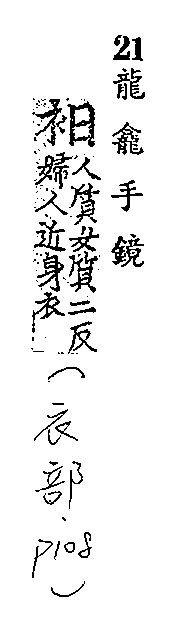 21龍龕手鏡
衵人質女質二反婦人近身衣
(衣部、P108)